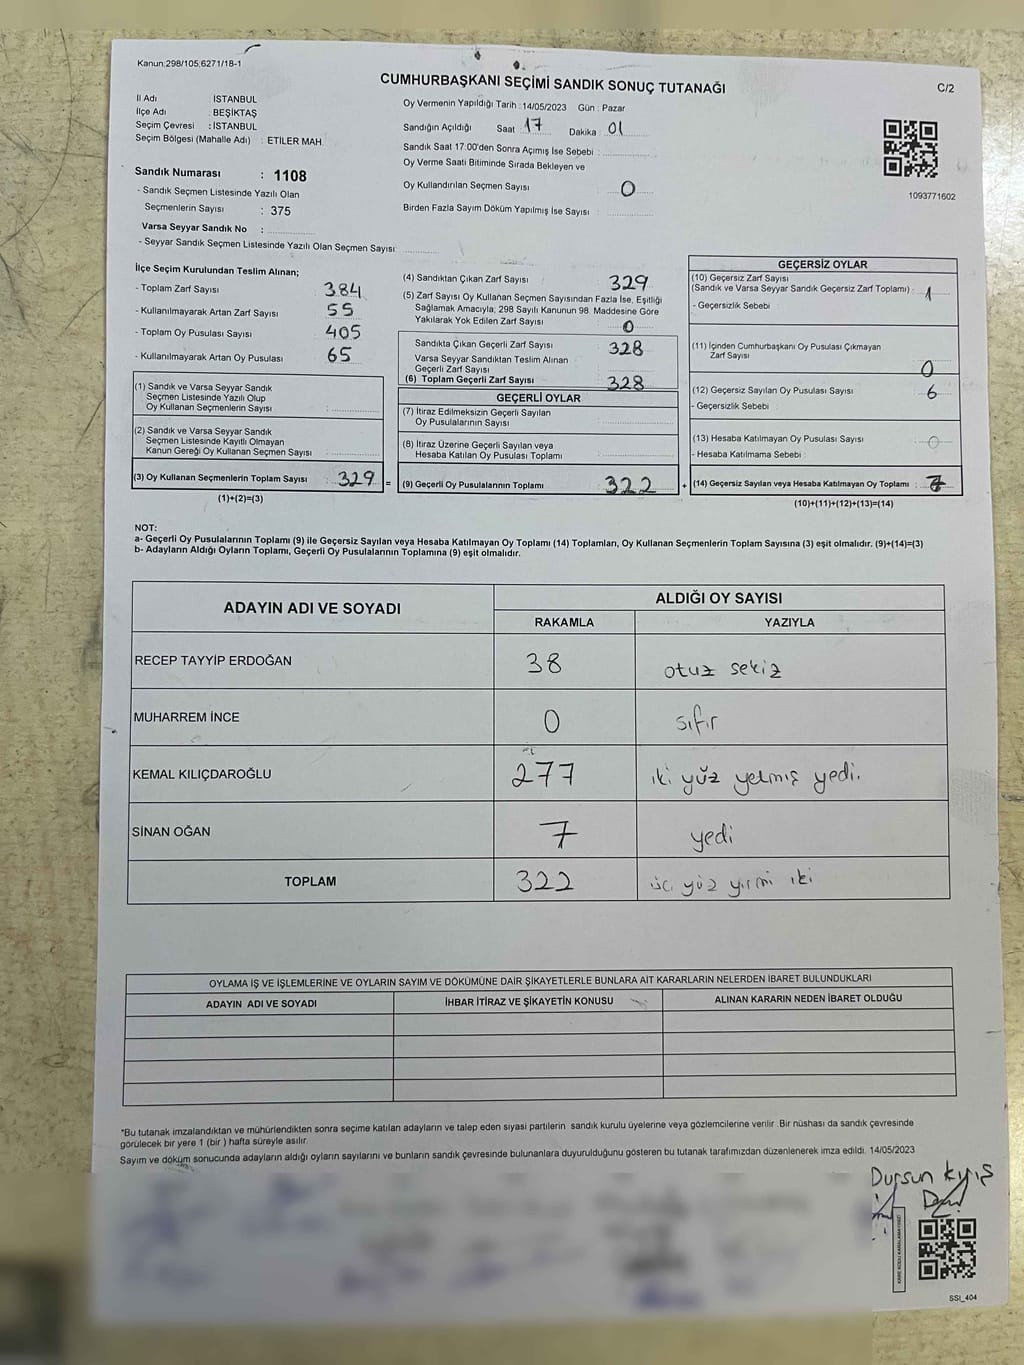 Kanun:298/105;6271/18-1
CUMHURBAŞKANI SEÇİMİ SANDIK SONUÇ TUTANAĞI
C/2
İl Adı : İSTANBUL
İlçe Adı : BEŞİKTAŞ
Seçim Çevresi : İSTANBUL
Seçim Bölgesi (Mahalle Adı) : ETİLER MAH.
Sandık Numarası : 1108
- Sandık Seçmen Listesinde Yazılı Olan
Seçmenlerin Sayısı : 375
Varsa Seyyar Sandık No :
- Seyyar Sandık Seçmen Listesinde Yazılı Olan Seçmen Sayısı:
Oy Vermenin Yapıldığı Tarih : 14/05/2023 Gün : Pazar
Sandığın Açıldığı Saat 17 Dakika : 01
Sandık Saat 17:00'den Sonra Açılmış İse Sebebi :
Oy Verme Saati Bitiminde Sırada Bekleyen ve
Oy Kullandırılan Seçmen Sayısı : 0
Birden Fazla Sayım Döküm Yapılmış İse Sayısı :
1093771602
İlçe Seçim Kurulundan Teslim Alınan;
- Toplam Zarf Sayısı : 384
- Kullanılmayarak Artan Zarf Sayısı : 55
- Toplam Oy Pusulası Sayısı : 405
- Kullanılmayarak Artan Oy Pusulası : 65
(1) Sandık ve Varsa Seyyar Sandık
Seçmen Listesinde Yazılı Olup
Oy Kullanan Seçmenlerin Sayısı :
(2) Sandık ve Varsa Seyyar Sandık
Seçmen Listesinde Kayıtlı Olmayan
Kanun Gereği Oy Kullanan Seçmen Sayısı :
(3) Oy Kullanan Seçmenlerin Toplam Sayısı : 329 =
(1)+(2)=(3)
(4) Sandıktan Çıkan Zarf Sayısı : 329
(5) Zarf Sayısı Oy Kullanan Seçmen Sayısından Fazla İse, Eşitliği
Sağlamak Amacıyla, 298 Sayılı Kanunun 98. Maddesine Göre
Yakılarak Yok Edilen Zarf Sayısı : 0
Sandıkta Çıkan Geçerli Zarf Sayısı : 328
Varsa Seyyar Sandıktan Teslim Alınan
Geçerli Zarf Sayısı :
(6) Toplam Geçerli Zarf Sayısı : 328
GEÇERLİ OYLAR
(7) İtiraz Edilmeksizin Geçerli Sayılan
Oy Pusulalarının Sayısı :
(8) İtiraz Üzerine Geçerli Sayılan veya
Hesaba Katılan Oy Pusulası Toplamı :
(9) Geçerli Oy Pusulalarının Toplamı : 322 +
GEÇERSİZ OYLAR
(10) Geçersiz Zarf Sayısı
(Sandık ve Varsa Seyyar Sandık Geçersiz Zarf Toplamı) : 1
- Geçersizlik Sebebi :
(11) İçinden Cumhurbaşkanı Oy Pusulası Çıkmayan
Zarf Sayısı : 0
(12) Geçersiz Sayılan Oy Pusulası Sayısı : 6
- Geçersizlik Sebebi :
(13) Hesaba Katılmayan Oy Pusulası Sayısı : 0
- Hesaba Katılmama Sebebi :
(14) Geçersiz Sayılan veya Hesaba Katılmayan Oy Toplamı : 7
(10)+(11)+(12)+(13)=(14)
NOT:
a- Geçerli Oy Pusulalarının Toplamı (9) ile Geçersiz Sayılan veya Hesaba Katılmayan Oy Toplamı (14) Toplamları, Oy Kullanan Seçmenlerin Toplam Sayısına (3) eşit olmalıdır. (9)+(14)=(3)
b- Adayların Aldığı Oyların Toplamı, Geçerli Oy Pusulalarının Toplamına (9) eşit olmalıdır.
ADAYIN ADI VE SOYADI
ALDIĞI OY SAYISI
RAKAMLA YAZIYLA
RECEP TAYYİP ERDOĞAN 38 otuz sekiz
MUHARREM İNCE 0 sıfır
KEMAL KILIÇDAROĞLU 277 iki yüz yetmiş yedi.
SİNAN OĞAN 7 yedi
TOPLAM 322 üç yüz yirmi iki
OYLAMA İŞ VE İŞLEMLERİNE VE OYLARIN SAYIM VE DÖKÜMÜNE DAİR ŞİKAYETLERLE BUNLARA AİT KARARLARIN NELERDEN İBARET BULUNDUKLARI
ADAYIN ADI VE SOYADI İHBAR İTİRAZ VE ŞİKAYETİN KONUSU ALINAN KARARIN NEDEN İBARET OLDUĞU
*Bu tutanak imzalandıktan ve mühürlendikten sonra seçime katılan adayların ve talep eden siyasi partilerin sandık kurulu üyelerine veya gözlemcilerine verilir. Bir nüshası da sandık çevresinde
görülecek bir yere 1 (bir) hafta süreyle asılır.
Sayım ve döküm sonucunda adayların aldığı oyların sayılarını ve bunların sandık çevresinde bulunanlara duyurulduğunu gösteren bu tutanak tarafımızdan düzenlenerek imza edildi. 14/05/2023
Dursun
KARE KODU KARALAMAYINIZ!
SSI_404